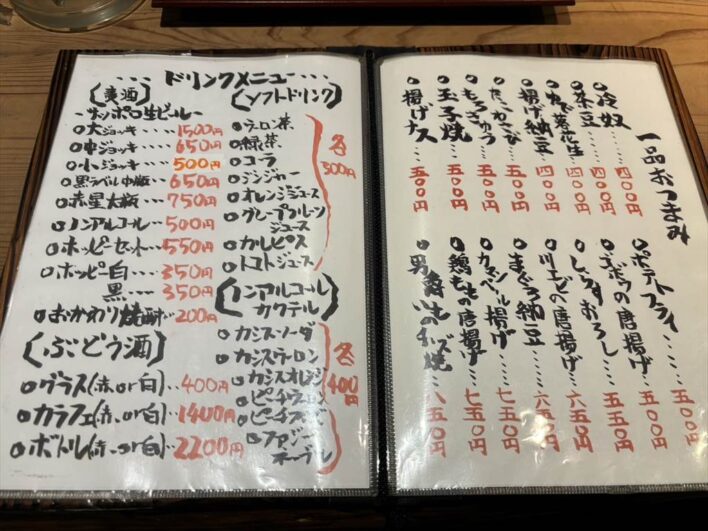 ドリンクメニュー
(麦酒)
サッポロ生ビール
大ジョッキ・・・・1500円
中ジョッキ・・・・650円
小ジョッキ・・・・500円
黒ラベル中瓶・・・650円
赤星大瓶・・・・750円
ノンアルコール・・・500円
ホッピーセット・・・・550円
ホッピー白・・・・350円
黒・・・・350円
おかわり焼酎・・200円
(ぶどう酒)
グラス(赤or白)・・400円
カラフェ(赤or白)・・1400円
ボトル(赤or白)・・2200円
(ソフトドリンク)
ウーロン茶
緑茶
コーラ
ジンジャー
オレンジジュース
グレープフルーツジュース
カルピス
トマトジュース
各300円
(ノンアルコールカクテル)
カシスソーダ
カシスウーロン
カシスオレンジ
ピーチウーロン
ファジーネーブル
各400円
一品おつまみ
冷奴・・・・四〇〇円
茶豆・・・・四〇〇円
揚げ納豆・・・四〇〇円
たこわさび・・・五〇〇円
もろきゅう・・・五〇〇円
玉子焼・・・・五〇〇円
揚げナス・・・五〇〇円
ポテトフライ・・・・五〇〇円
ゴボウの唐揚げ・・・五〇〇円
しらすおろし・・・五五〇円
川エビの唐揚げ・・・六五〇円
まぐろ納豆・・・・六五〇円
カマンベール揚げ・・・七五〇円
鶏ももの唐揚げ・・・七五〇円
八五〇円